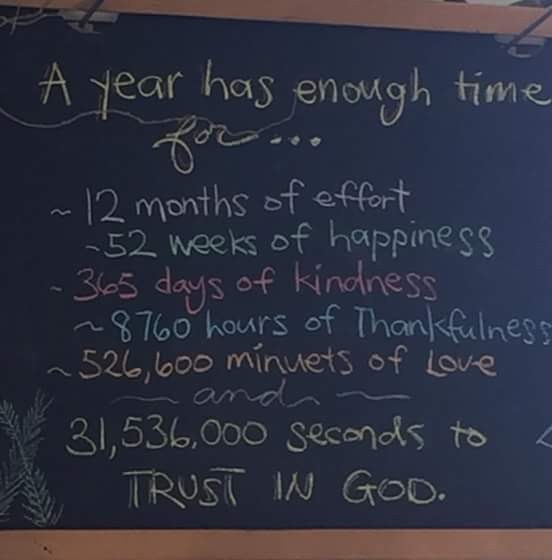 A year has enough time
for...
~ 12 months of effort
~52 weeks of happiness
~ 365 days of kindness
~ 8760 hours of Thankfulness
~ 526,600 minuets of Love
~ and ~
31,536,000 seconds to
TRUST IN GOD.